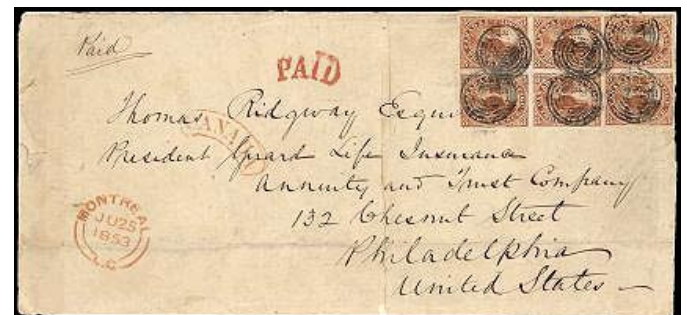 Paid
PAID
Thomas Ridgway Esqui
CANADA
President Girard Life Insurance
Annuity and Trust Company
132 Chesnut Street
Philadelphia
United States
MONTREAL
JU 25
1853
L.C